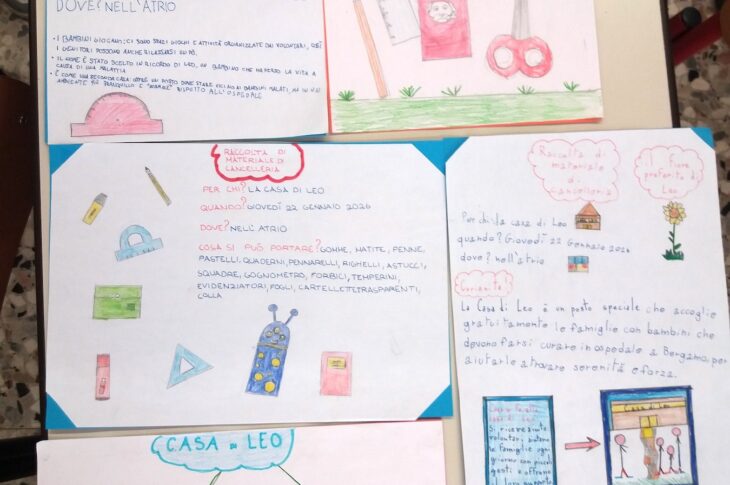 DOVE? NELL'ATRIO
• I BAMBINI GIOCANO: CI SONO SPAZI GIOCHI E ATTIVITÀ ORGANIZZATE DAI VOLONTARI, COSÌ
I GENITORI POSSONO ANCHE RILASSARSI UN PO'.
• IL NOME È STATO SCELTO IN RICORDO DI LEO, UN BAMBINO CHE HA PERSO LA VITA A
CAUSA DI UNA MALATTIA
• È COME UNA SECONDA CASA: OFFRE UN POSTO DOVE STARE VICINO AI BAMBINI MALATI, MA IN UN
AMBIENTE PIÙ TRANQUILLO E "NORMALE" RISPETTO ALL'OSPEDALE
RACCOLTA DI
MATERIALE DI
CANCELLERIA
PER CHI? LA CASA DI LEO
QUANDO? GIOVEDÌ 22 GENNAIO 2026
DOVE? NELL'ATRIO
COSA SI PUÒ PORTARE? GOMME, MATITE, PENNE,
PASTELLI, QUADERNI, PENNARELLI, RIGHELLI, ASTUCCI,
SQUADRE, GOGNOMETRO, FORBICI, TEMPERINI,
EVIDENZIATORI, FOGLI, CARTELLETTE TRASPARENTI,
COLLA
Raccolta di
materiale
di
cancelleria
il fiore
preferito di
Leo
Per chi? la casa di Leo
quando? Giovedì 22 Gennaio 2026
dove? nell'atrio
Curiosità!
La Casa di Leo è un posto speciale che accoglie
gratuitamente le famiglie con bambini che
devono farsi curare in ospedale a Bergamo, per
aiutarle a trovare serenità e forza.
casa di Leo
volontari
le famiglie ogni
giorno con piccoli
gesti e offrono
Casa di Leo
CASA DI LEO